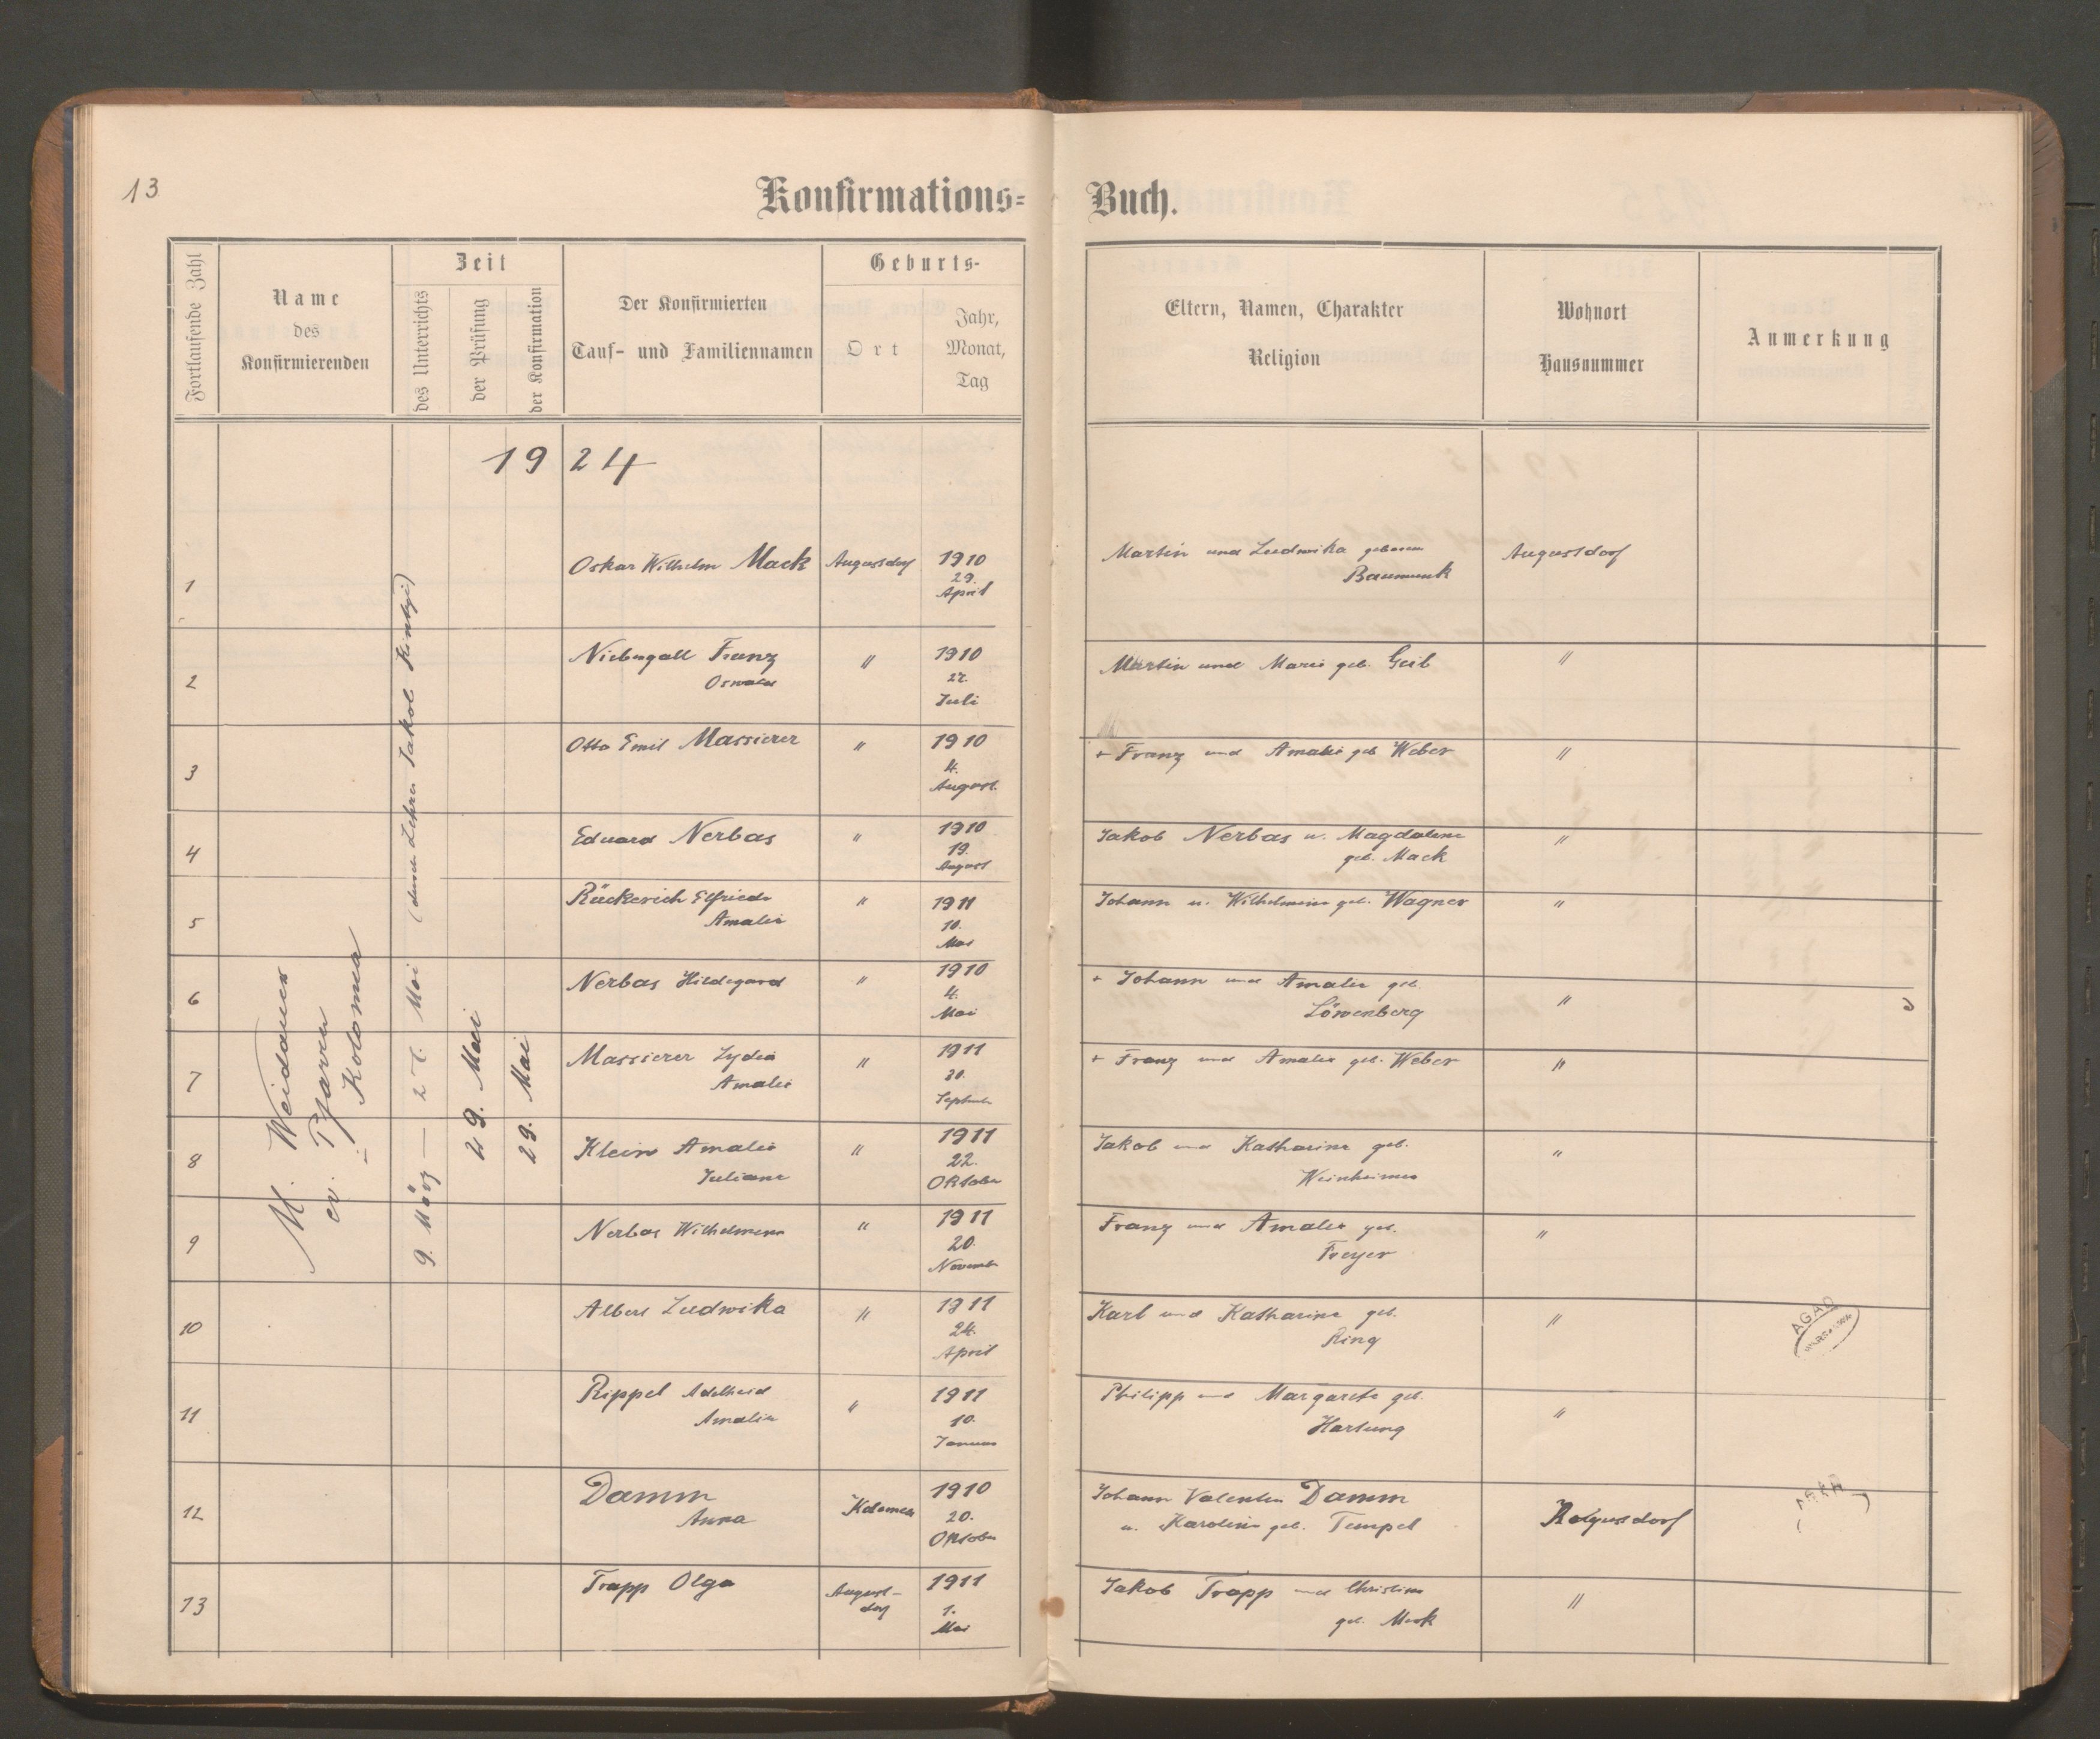 13
Konfirmations= Buch.
Fortlaufende Zahl
Name
des
Konfirmierenden
Zeit
des Unterrichts
der Prüfung
der Konfirmation
Der Konfirmierten
Tauf- und Familiennamen
Geburts-
Ort
Jahr,
Monat,
Tag
Eltern, Namen, Charakter
Religion
Wohnort
Hausnummer
Anmerkung
1924
M. Weidauer
ev. Pfarrer
in Kolomea
9. März — 27. Mai (durch Lehrer Jakob)
29. Mai
29. Mai
1 Oskar Wilhelm Mack Augustdorf 1910
29.
April
Martin und Ludwika geborene
Baumunk
Augustdorf
2 Niebergall Franz
Oswald
" 1910
27.
Juli
Martin und Marie geb. Geib "
3 Otto Emil Massierer " 1910
4.
August.
+ Franz und Amalie geb Weber "
4 Eduard Nerbas " 1910
19.
August
Jakob Nerbas u. Magdalena
geb. Mack
"
5 Rückerich Elfriede
Amalie
" 1911
10.
Mai
Johann u. Wilhelmine geb. Wagner "
6 Nerbas Hildegard " 1910
4.
Mai
+ Johann und Amalie geb.
Löwenberg
"
7 Massierer Lydia
Amalie
" 1911
20.
September
+ Franz und Amalie geb. Weber "
8 Klein Amalie
Juliane
" 1911
22.
Oktober
Jakob und Katharina geb.
Weinheimer
"
9 Nerbas Wilhelmine " 1911
20.
November
Franz und Amalie geb.
Freyer
"
10 Albert Ludwika " 1911
24.
April
Karl und Katharina geb.
Ring
"
AGAD
WARSZAWA
11 Rippel Adelheid
Amalie
" 1911
10.
Januar
Philipp und Margarete geb.
Hartung
"
12 Damm
Anna
Kolomea 1910
20.
Oktober
Johann Valentin Damm
u. Karoline geb. Tempel
13 Trapp Olga August-
dorf
1911
1.
Mai
Jakob Trapp und Christine
geb. Mack
"